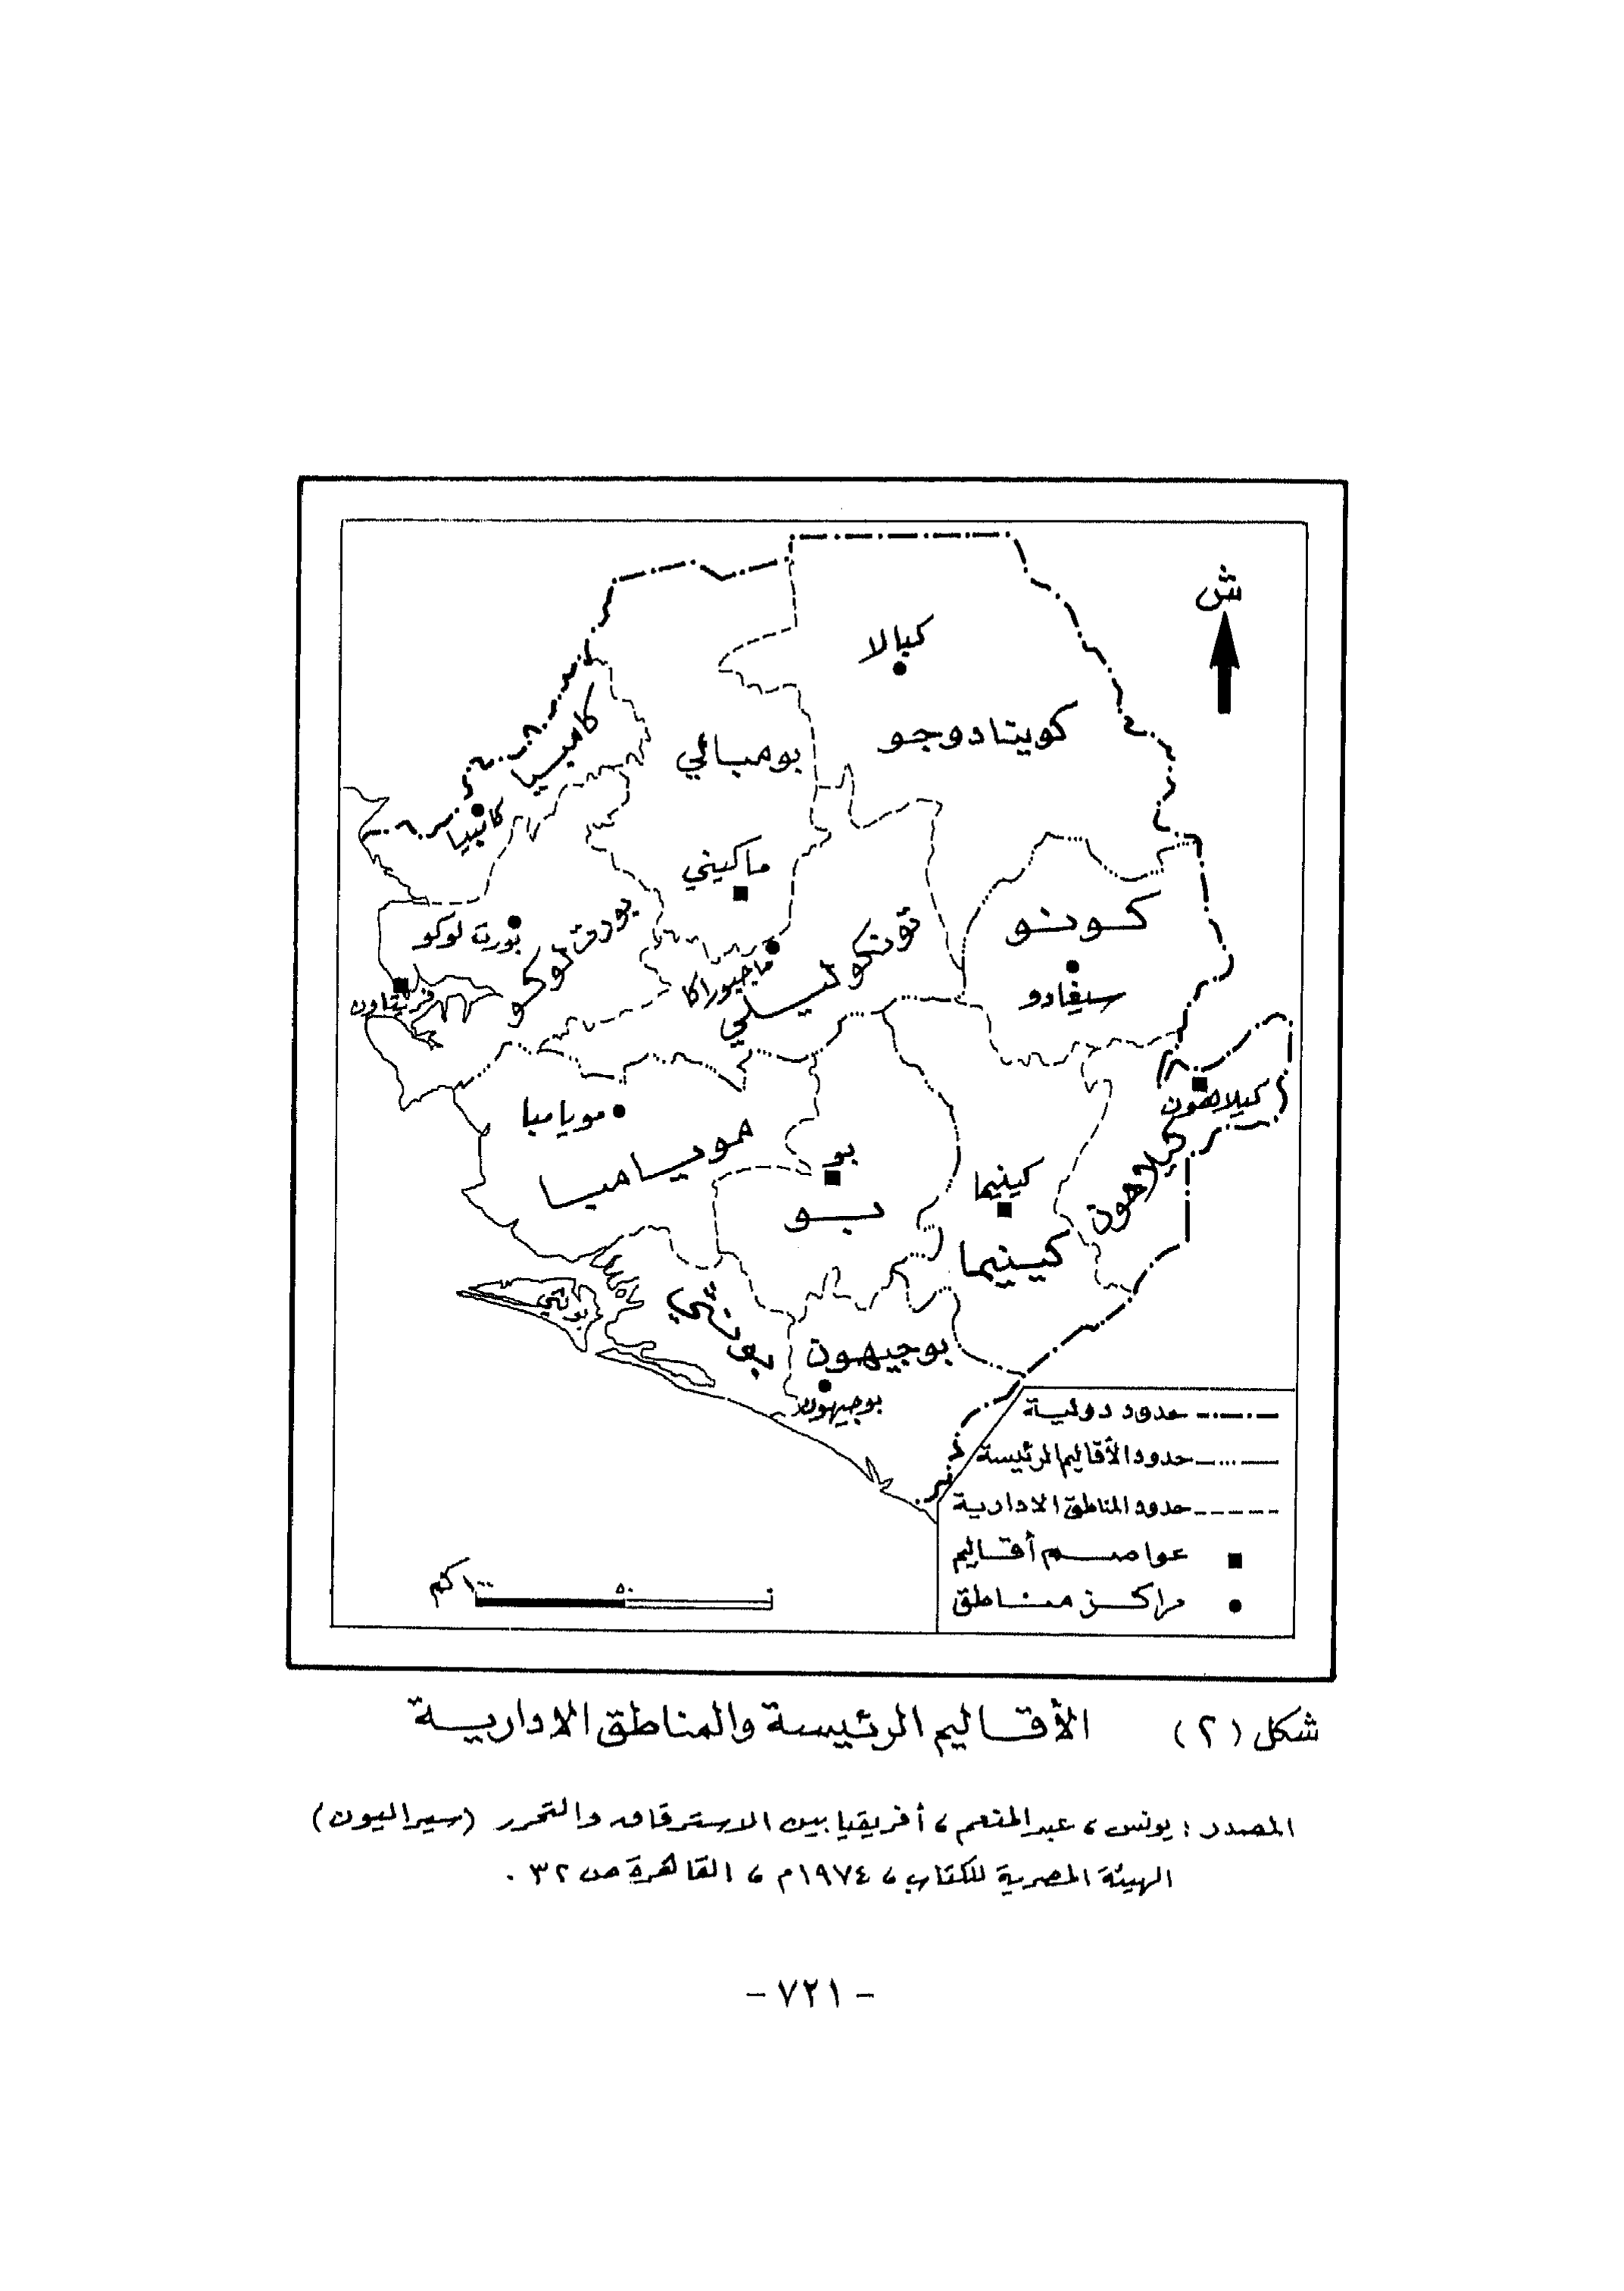 ش
كبالا
كويتادوجو
كامبيا
بومبالي
كامبيا
ماكيني
كونو
بورت لوكو
بورت لوكو
تونكوليلي
ماجبوراكا
سيفادو
فريتاون
كيلاهون
مويامبا
مويامبا
بو
بو
كينيما
كينيما
كيلاهون
بونثي
بونثي
بوجيهون
بوجيهون
حدود دولية
حدود الأقاليم الرئيسة
حدود المناطق الادارية
عواصم أقاليم
مراكز مناطق
٠ ٥٠ ١٠٠ كم
شكل (٢) الأقاليم الرئيسة والمناطق الادارية
المصدر : يونس ، عبد المنعم ، أفريقيا بين الاسترقاق والتحرر (سيراليون)
الهيئة المصرية للكتاب ، ١٩٧٤م ، القاهرة ص ٣٢ .
- ٧٢١ -